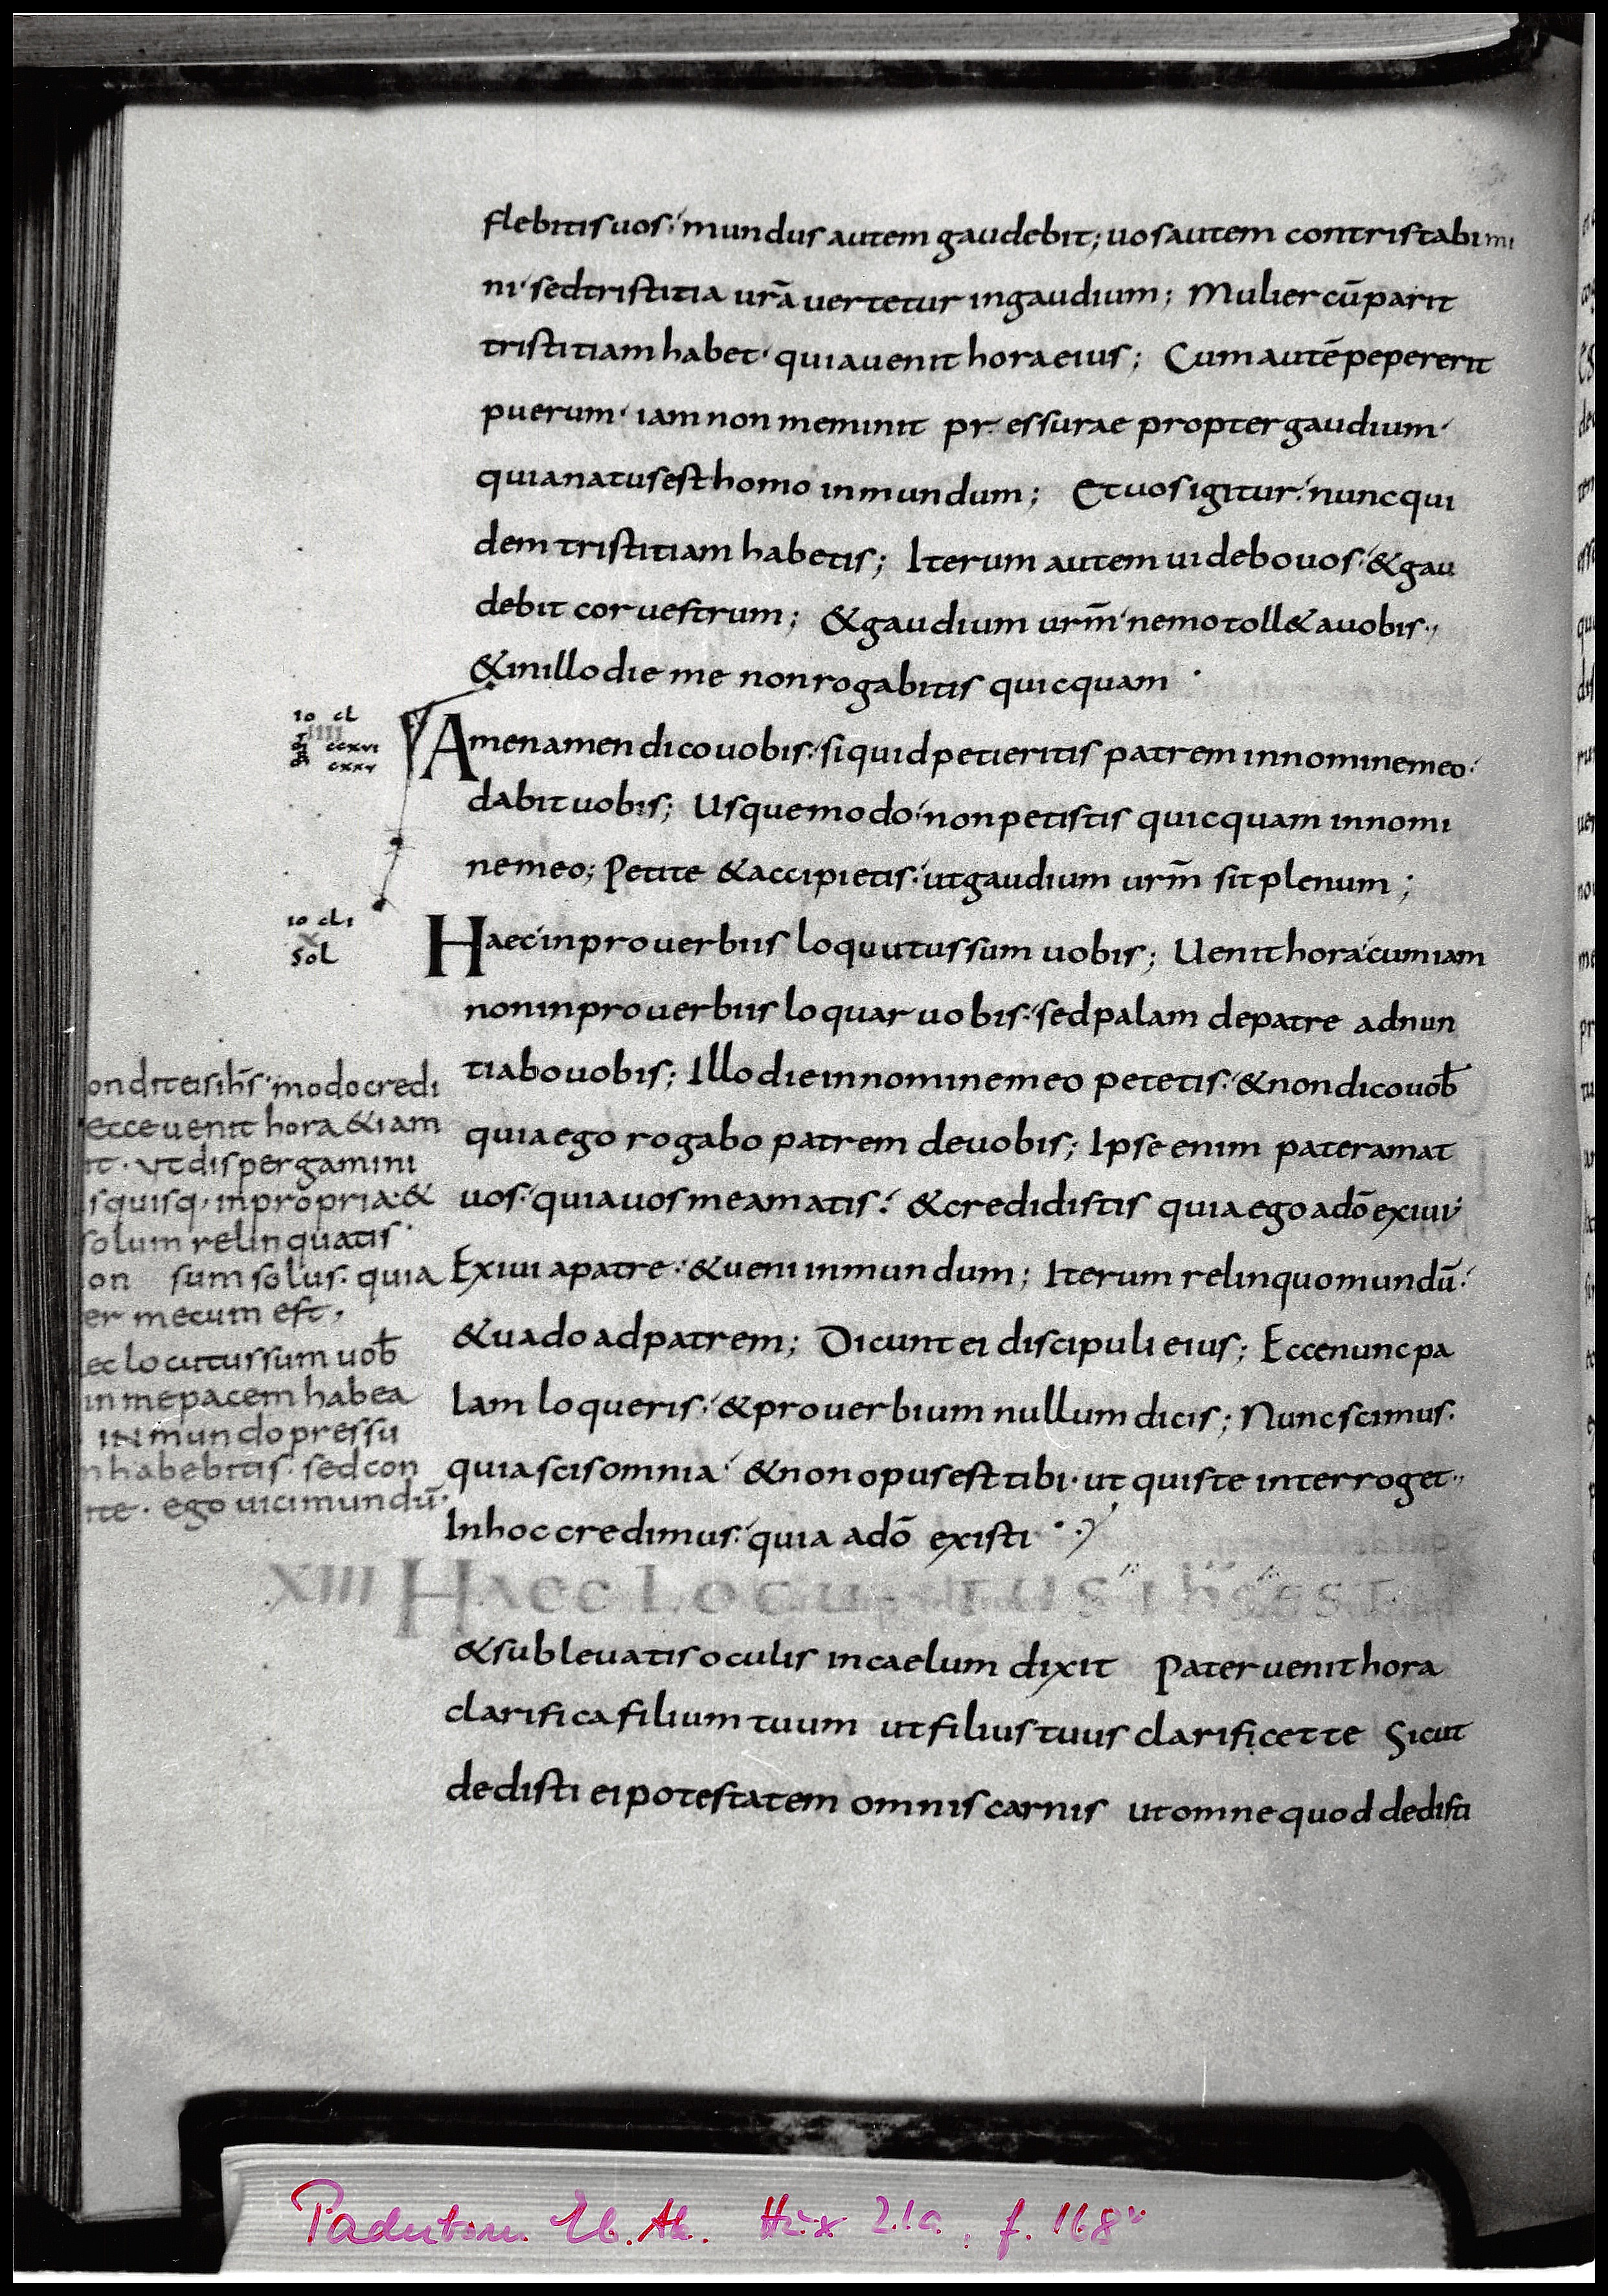 flebitis uos. mundus autem gaudebit; uos autem contristabimi
ni. sed tristitia urã uertetur in gaudium; Mulier cũ parit
tristitiam habet. quia uenit hora eius; Cum autẽ pepererit
puerum. iam non meminit pressurae propter gaudium.
quia natus est homo in mundum; Et uos igitur. nunc qui
dem tristitiam habetis; Iterum autem uidebo uos. & gau
debit cor uestrum; & gaudium urm̃ nemo toll& a uobis.,
& in illo die me non rogabitis quicquam.
io cl
IIII
ccxvi
cxxv
Amen amen dico uobis. si quid petieritis patrem in nomine meo.
dabit uobis; Usque modo. non petistis quicquam in nomi
ne meo; Petite & accipietis. ut gaudium urm̃ sit plenum;
io cli
X
Sol
Haec in prouerbiis loquutus sum uobis; Uenit hora cum iam
non in prouerbiis loquar uobis. sed palam de patre adnun
tiabo uobis; Illo die in nomine meo petetis. & non dico uob̄
quia ego rogabo patrem de uobis; Ipse enim pater amat
uos. quia uos me amatis. & credidistis quia ego a dō exiui
Exiui a patre. & ueni in mundum; Iterum relinquo mundū.
& uado ad patrem; Dicunt ei discipuli eius; Ecce nunc pa
lam loqueris. & prouerbium nullum dicis; Nunc scimus.
quia scis omnia. & non opus est tibi. ut quis te interroget.,
In hoc credimus. quia a dō existi
ondit eis ih̄s. modo credi
ecce uenit hora & iam
it. ut dispergamini
isquisq; in propria. &
solum relinquatis.
on sum solus. quia
er mecum est,
ec locutus sum uob̄
in me pacem habea
IN mundo pressu
n habebitis. sed con
ite. ego uici mundū.
XIII Haec Locutus ih̄s est
& subleuatis oculis in caelum dixit Pater uenit hora
clarifica filium tuum ut filius tuus clarificet te Sicut
dedisti ei potestatem omnis carnis ut omne quod dedisti
f. 168v